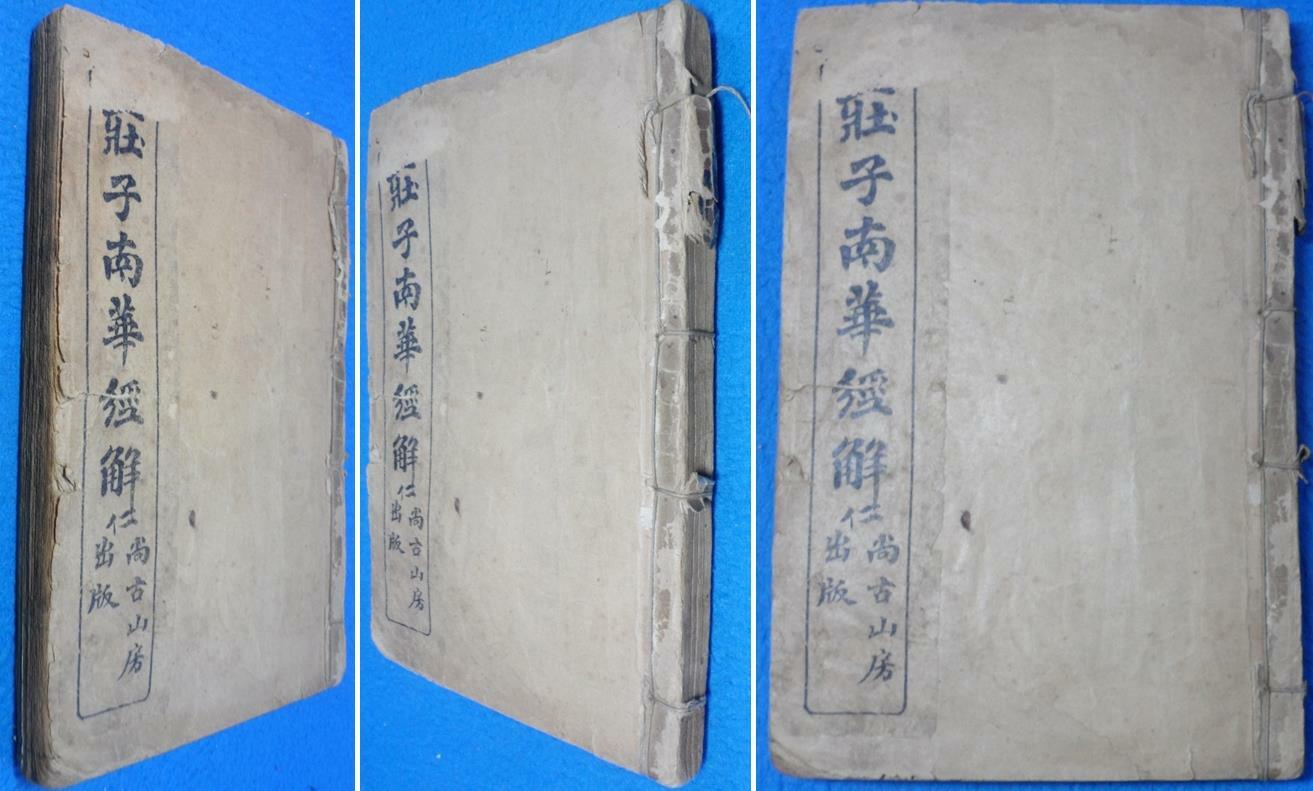 莊子南華經解
仁
尚古山房
出版
莊子南華經解
仁
尚古山房
出版
莊子南華經解
仁
尚古山房
出版